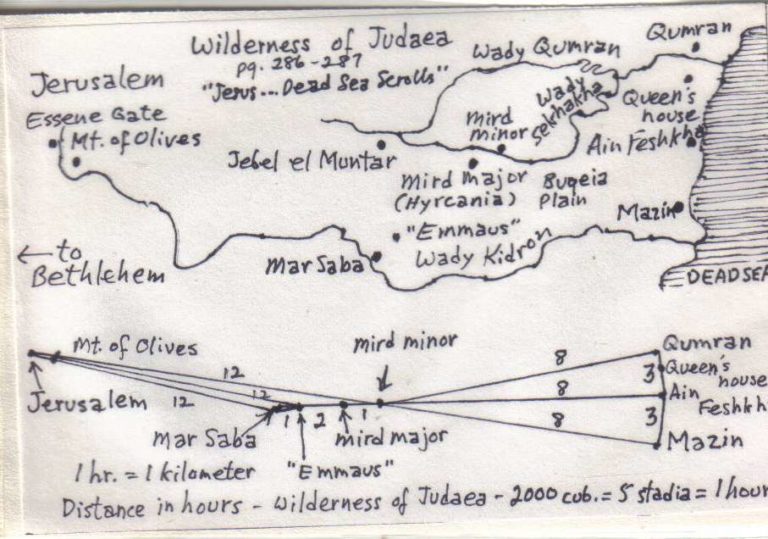 Wilderness of Judaea
pg. 286-287
"Jesus...Dead Sea Scrolls"
Jerusalem
Essene Gate
Mt. of Olives
← to
Bethlehem
Wady Qumran
Qumran
Wady
Sekhakha
Queen's
house
Ain Feshkha
mird
minor
Jebel el Muntar
Mird major
(Hyrcania)
Buqeia
Plain
Mazin
"Emmaus"
Wady Kidron
Mar Saba
DEAD SEA
Mt. of Olives
mird minor
Qumran
Queen's
house
Ain
Feshkh
Mazin
12
12
12
8
8
8
3
3
Jerusalem
1
2
1
Mar Saba
mird major
1 hr. = 1 kilometer
"Emmaus"
Distance in hours - Wilderness of Judaea - 2000 cub. = 5 stadia = 1 hour